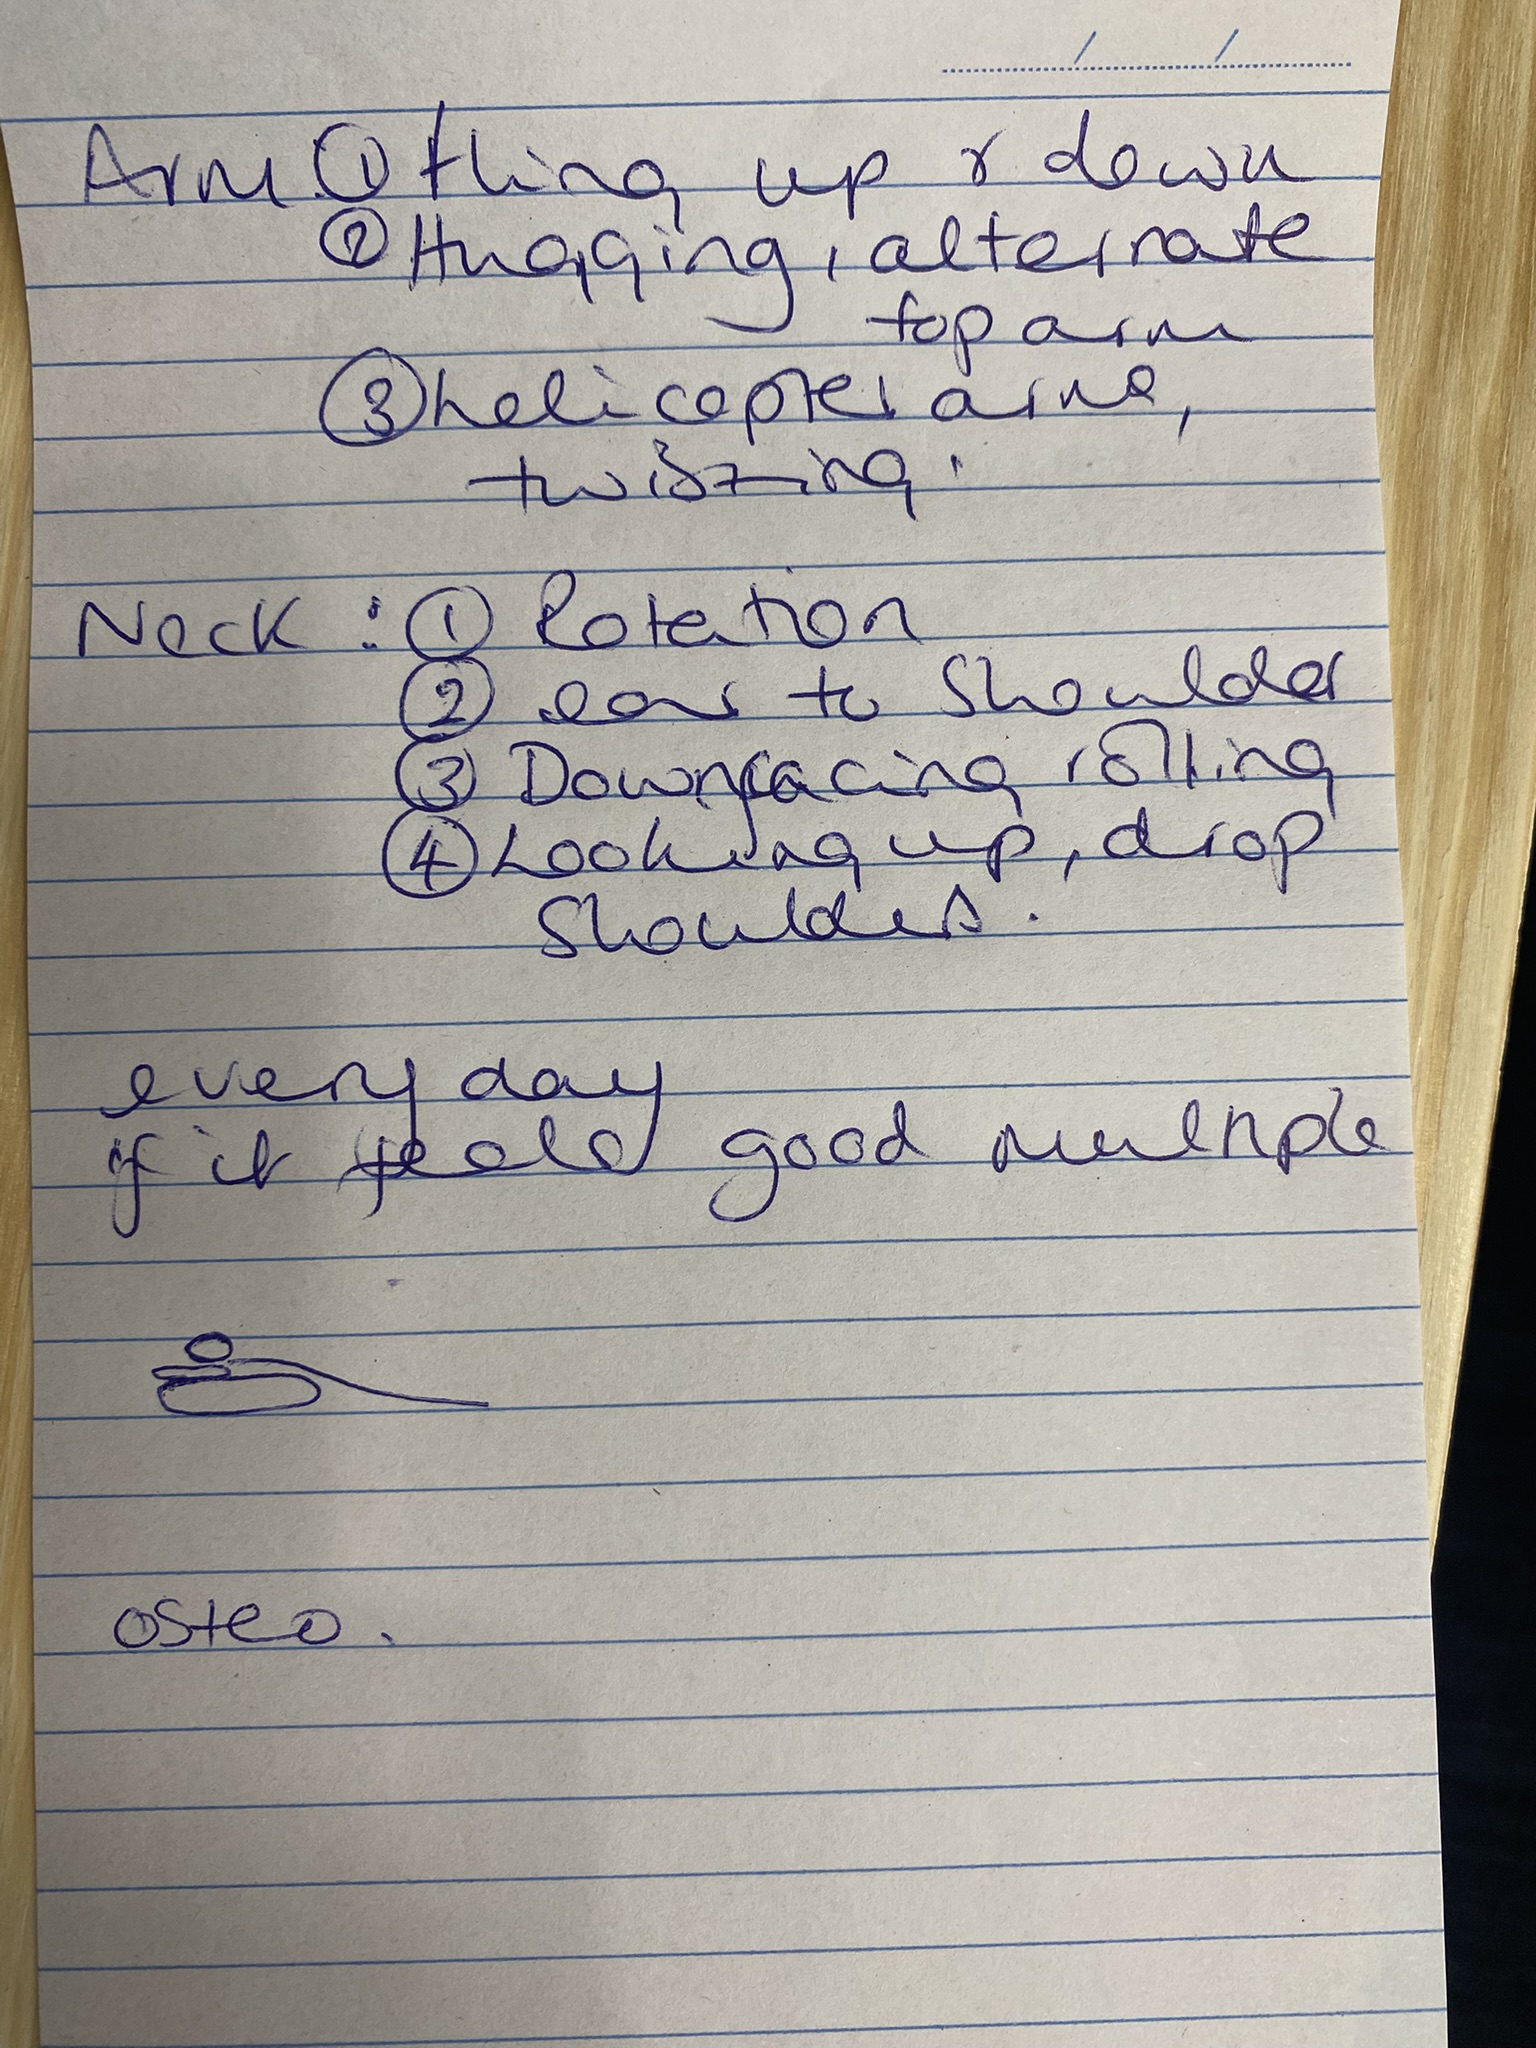 Arm: ① fling up & down
② Hugging, alternate
top arm
③ helicopter arms,
twisting.
Neck: ① Rotation
② ear to shoulder
③ Downfacing rolling
④ Looking up, drop
shoulders.
every day
if it feels good multiple
osteo.